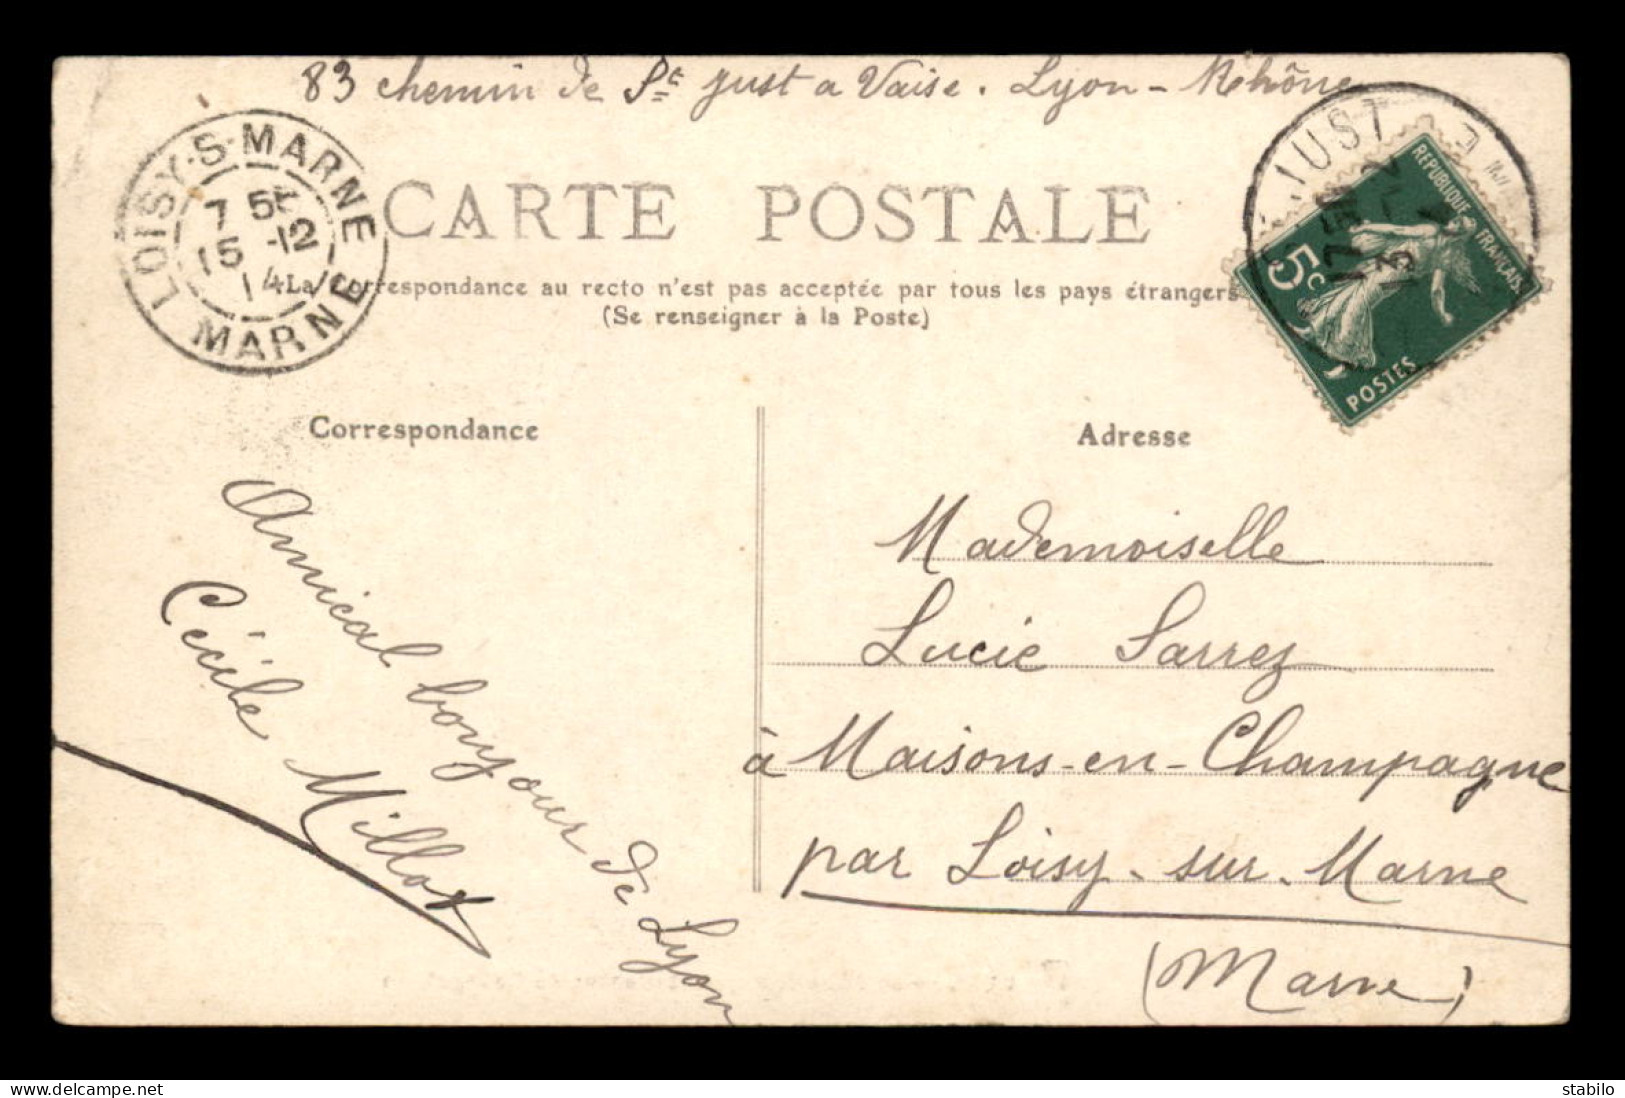 83 chemin de St Just a Vaise. Lyon - Rhône
LOISY-S-MARNE
7 5
15 -12
14
MARNE
CARTE POSTALE
La Correspondance au recto n'est pas acceptée par tous les pays étrangers
(Se renseigner à la Poste)
JUST
13
REPUBLIQUE FRANÇAISE
5c
POSTES
Correspondance
Amical bonjour de Lyon
Cécile Millot
Adresse
Mademoiselle
Lucie Sarrez
à Maisons-en-Champagne
par Loisy-sur-Marne
(Marne)
www.delcampe.net
stabilo